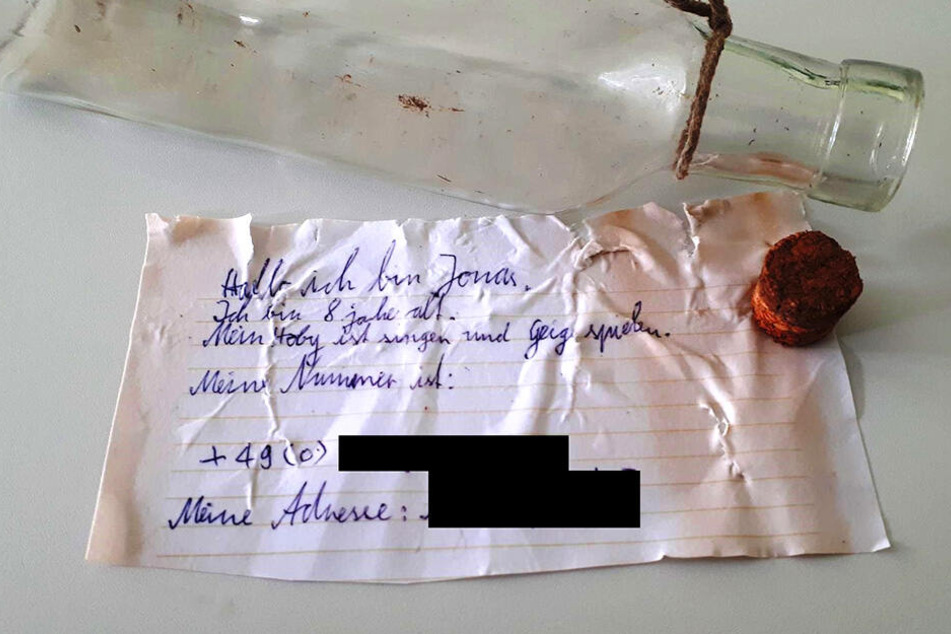 Hallo ich bin Jonas.
Ich bin 8 jahe alt.
Mein Hoby ist singen und geig spielen.
Meine Nummer ist:
+49(0)
Meine Adresse: